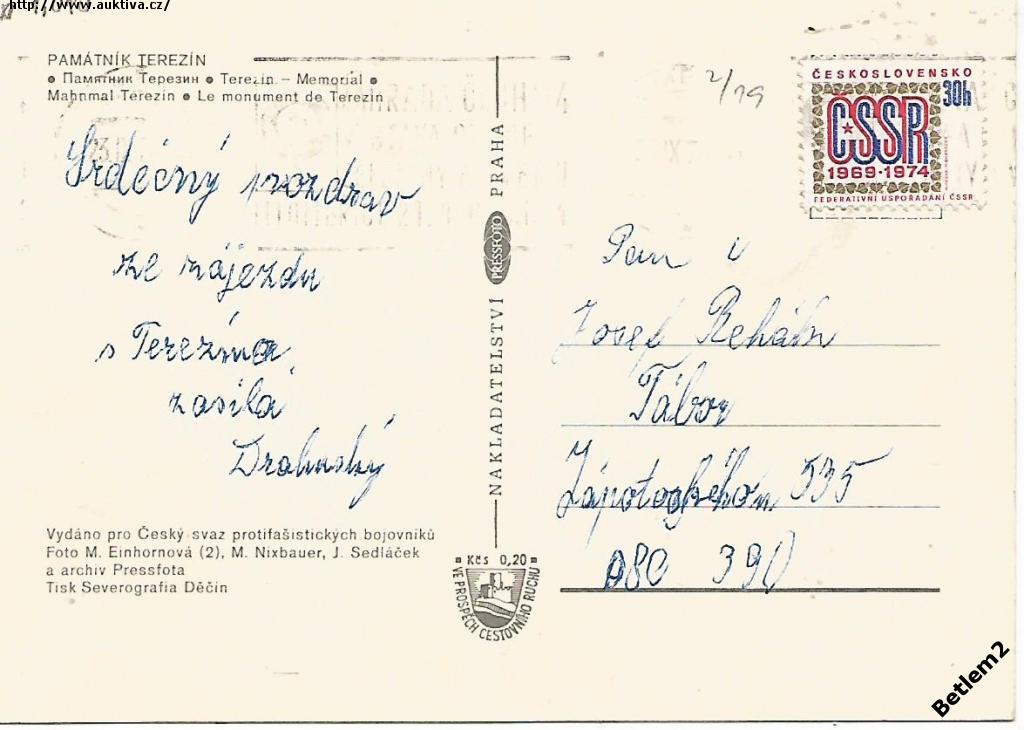 http://www.auktiva.cz/
PAMÁTNÍK TEREZÍN
• Памятник Терезин • Terezín – Memorial •
Mahnmal Terezín • Le monument de Terezín
Srdečný pozdrav
ze zájezdu
s Terezína
zasílá
Vydáno pro Český svaz protifašistických bojovníků
Foto M. Einhornová (2), M. Nixbauer, J. Sedláček
a archiv Pressfota
Tisk Severografia Děčín
NAKLADATELSTVÍ PRESSFOTO PRAHA
Kčs 0,20
VE PROSPĚCH CESTOVNÍHO RUCHU
2/19
ČESKOSLOVENSKO
30h
ČSSR
1969-1974
FEDERATIVNÍ USPOŘÁDÁNÍ ČSSR
Pan
Josef
Tábor
535
390
Betlem2